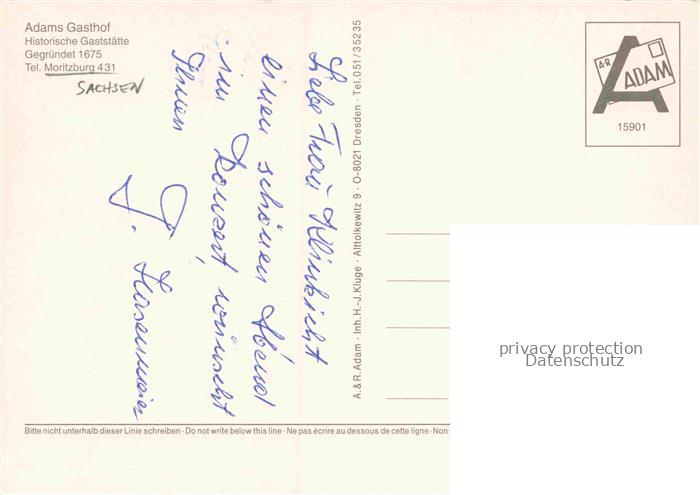 Adams Gasthof
Historische Gaststätte
Gegründet 1675
Tel. Moritzburg 431
SACHSEN
Liebe Frau Klinkicht
einen schönen Abend
im Konzert, wünscht
Ihnen
A.&R. Adam · Inh. H.-J. Kluge · Alttolkewitz 9 · O-8021 Dresden · Tel. 051/35235
A+R
ADAM
15901
privacy protection
Datenschutz
Bitte nicht unterhalb dieser Linie schreiben · Do not write below this line · Ne pas écrire au dessous de cette ligne · Non